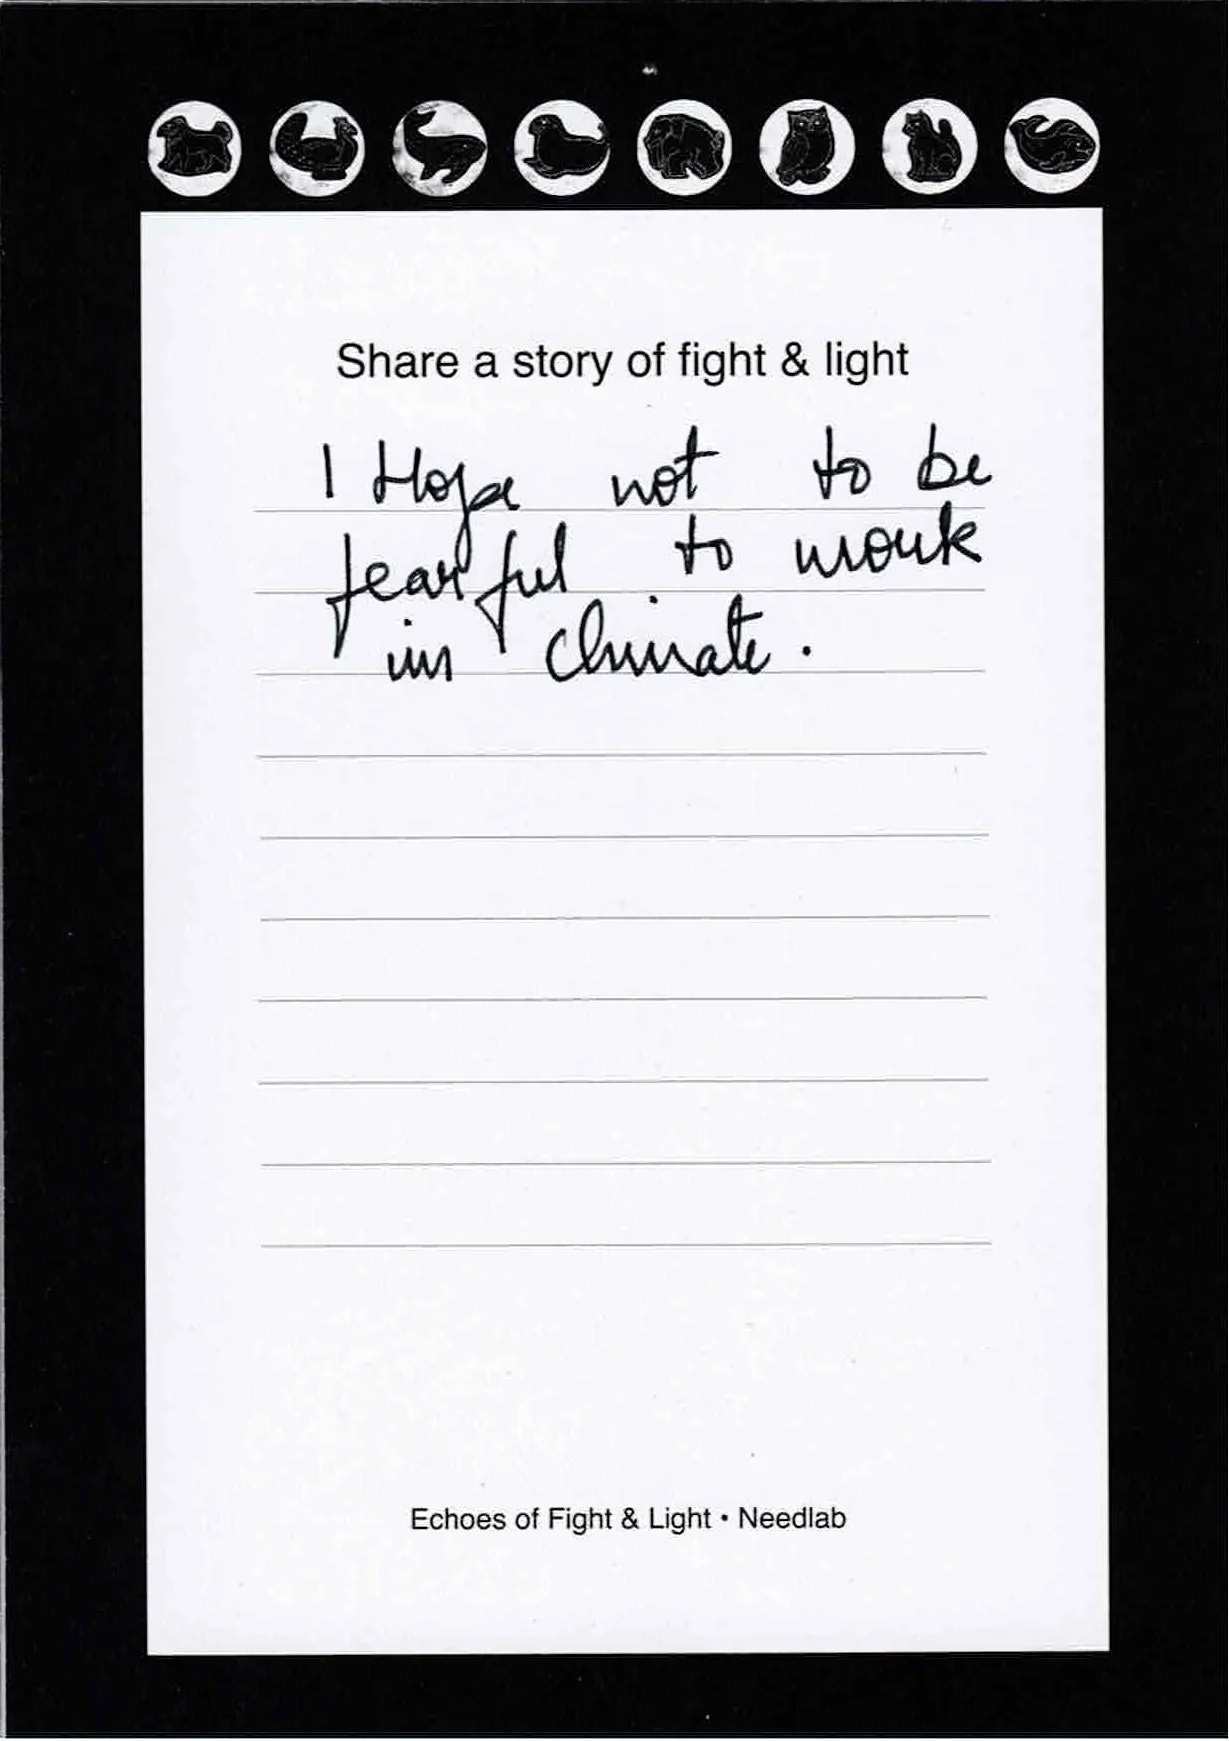 Share a story of fight & light
I Hope not to be
fearful to work
in climate.
Echoes of Fight & Light • Needlab